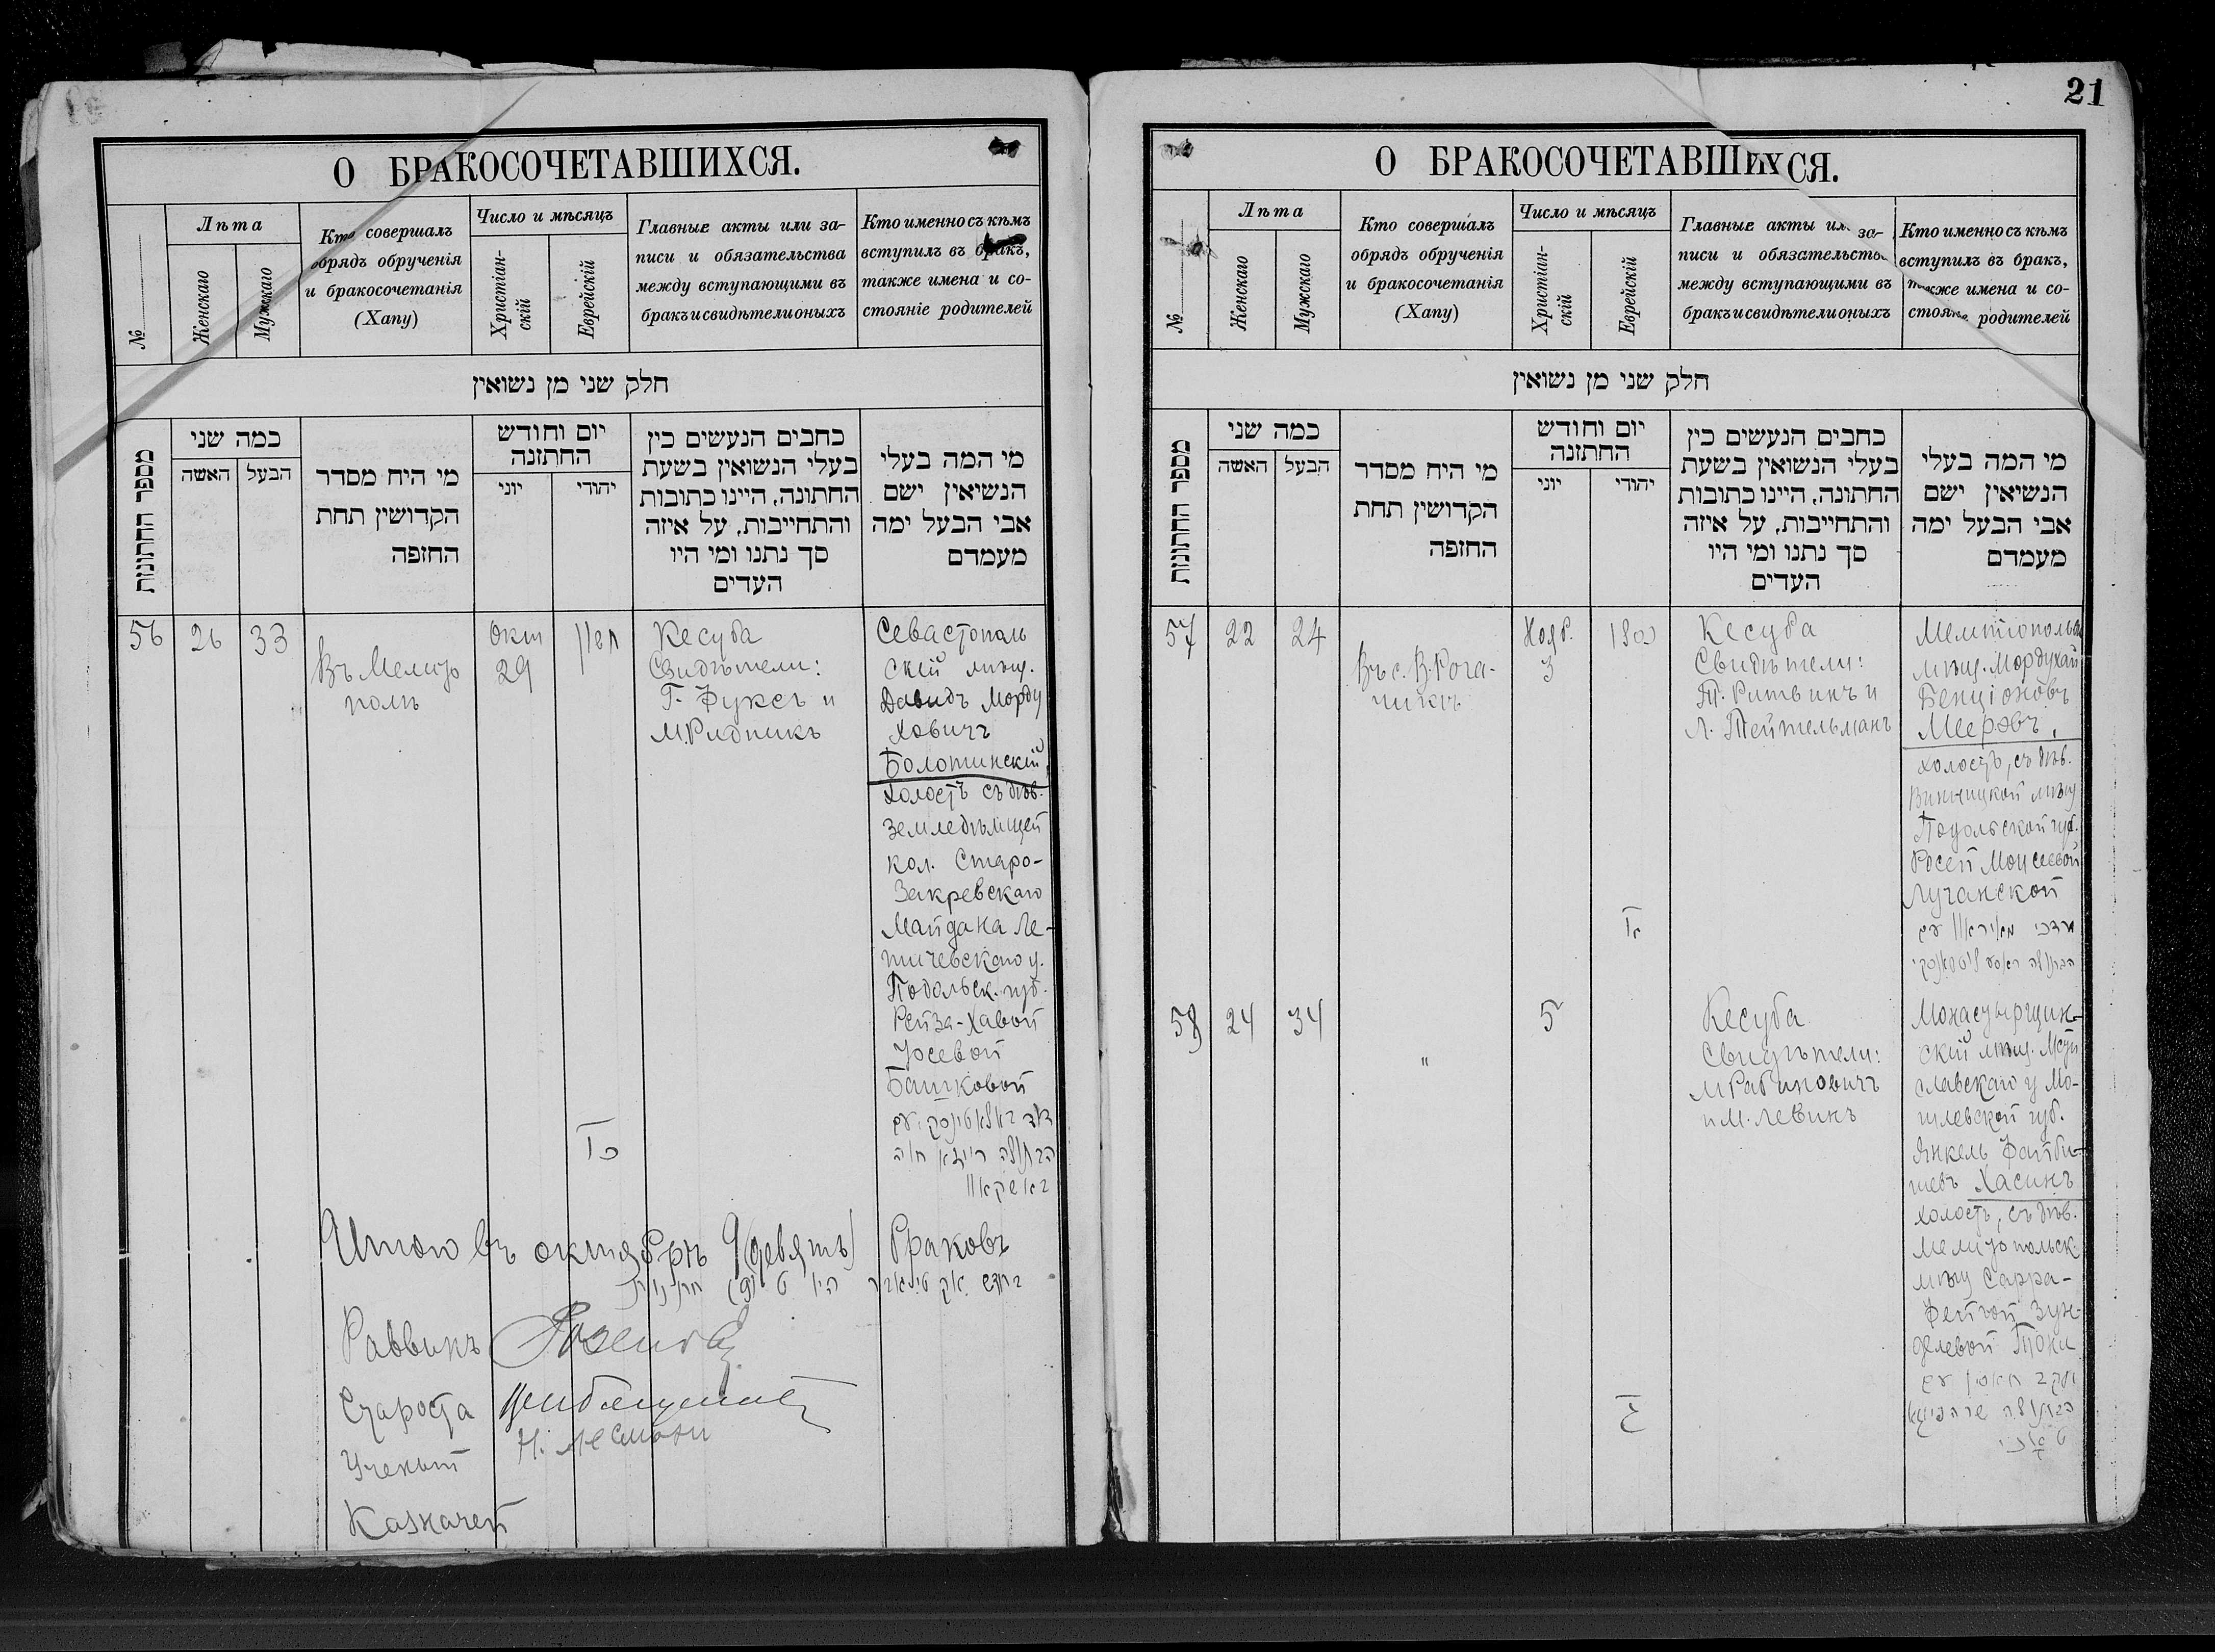 О БРАКОСОЧЕТАВШИХСЯ.
№
Лѣта
Женскаго
Мужскаго
Кто совершалъ
обрядъ обрученія
и бракосочетанія
(Хапу)
Число и мѣсяцъ
Христіан-
скій
Еврейскій
Главные акты или за-
писи и обязательства
между вступающими въ
бракъ и свидѣтели оныхъ
Кто именно съ кѣмъ
вступилъ въ бракъ,
также имена и со-
стояніе родителей
חלק שני מן נשואין
מספר החתונות
כמה שני
האשה
הבעל
מי היח מסדר
הקדושין תחת
החזפה
יום וחודש
החתזנה
יוני
יהודי
כחבים הנעשים כין
בעלי הנשואין בשעת
החתונה, היינו כתובות
והתחייבות, על איזה
סך נתנו ומי היו
העדים
מי המה בעלי
הנשיאין ישם
אבי הבעל ימה
מעמדם
56
26
33
Въ Мелито
полѣ
Окт
29
כד
Кесуба
Свидѣтели:
Г. Фуксъ и
М. Рудникъ
Севастополь
скій мѣщ.
Давидъ Морду
ховичъ
Болотинскій,
холостъ съ дѣв.
земледѣлицей
кол. Старо-
Закревскаго
Майдана Ле-
тичевскаго у.
Подольск. губ.
Рейза-Хавой
Іосевой
Башковой
Итого въ октябрѣ 9 (девять) браковъ
Раввинъ
Староста
Ученый
Казначей
21
О БРАКОСОЧЕТАВШИХСЯ.
№
Лѣта
Женскаго
Мужскаго
Кто совершалъ
обрядъ обрученія
и бракосочетанія
(Хапу)
Число и мѣсяцъ
Христіан-
скій
Еврейскій
Главные акты или за-
писи и обязательства
между вступающими въ
бракъ и свидѣтели оныхъ
Кто именно съ кѣмъ
вступилъ въ бракъ,
также имена и со-
стояніе родителей
חלק שני מן נשואין
מספר החתונות
כמה שני
האשה
הבעל
מי היח מסדר
הקדושין תחת
החזפה
יום וחודש
החתזנה
יוני
יהודי
כחבים הנעשים כין
בעלי הנשואין בשעת
החתונה, היינו כתובות
והתחייבות, על איזה
סך נתנו ומי היו
העדים
מי המה בעלי
הנשיאין ישם
אבי הבעל ימה
מעמדם
57
22
24
Въ с. В. Рога-
чикѣ
Нояб.
3
Кесуба
Свидѣтели:
Т. Ритвинъ и
Л. Тейтельманъ
мѣщ. Мордухай
Бенціоновъ
Мееровъ,
холостъ, съ дѣв.
Винницкой мѣщ
Подольской губ.
Росей Моисеевой
Луганской
58
24
34
"
5
Кесуба
Свидѣтели:
М Рабиновичъ
и М. Левинъ
Монастырщин-
скій мѣщ. Мсти
славскаго у Мо-
гилевской губ.
Янкель Файби-
шевъ Хасинъ
холостъ, съ дѣв.
Мелитопольск.
мѣщ Сарра-
Фейгой Зун-
делевой Токи